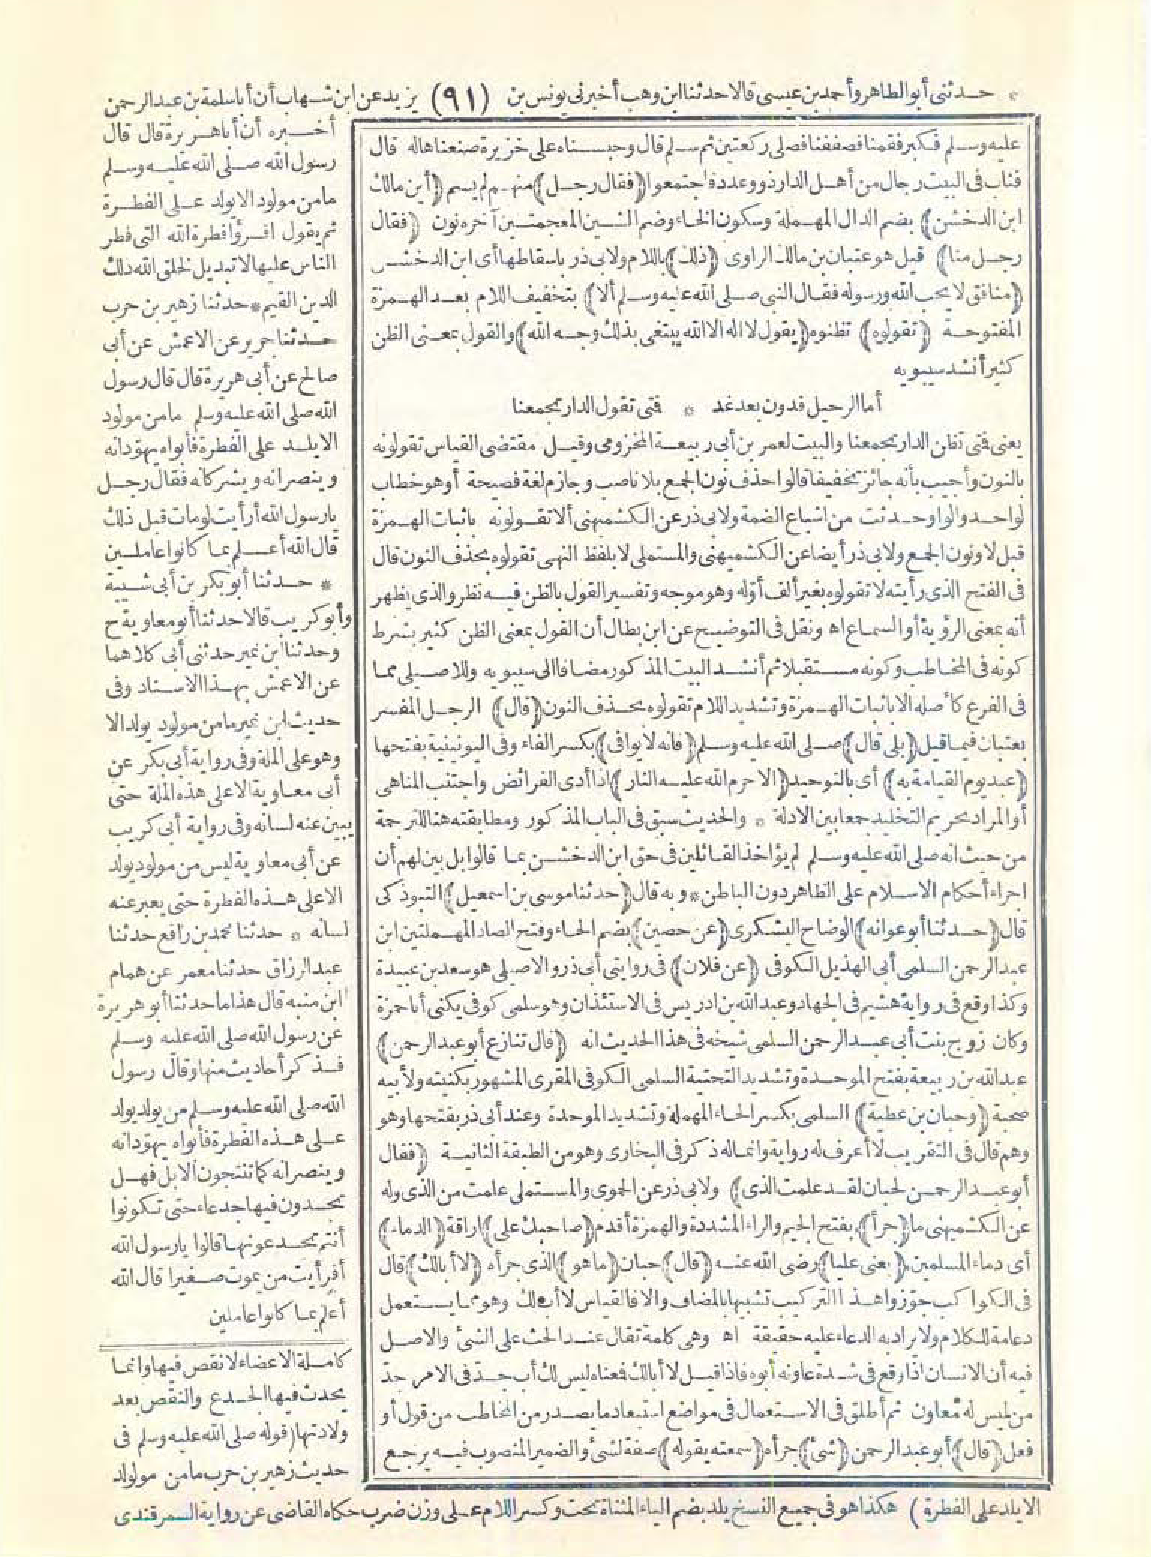 * حدثنى أبو الطاهر وأحمد بن عيسى قالا حدثنا ابن وهب أخبرنى يونس بن (٩١) يزيد عن ابن شهاب أن أبا سلمة بن عبد الرحمن
عليه وسلم فكبر فقمنا فصففنا فصلى ركعتين ثم سلم قال وحبسناه على خزيرة صنعناها له قال
فثاب فى البيت رجال من أهل الدار ذوو عدد فاجتمعوا (فقال رجل) منهم لم يسم (أين مالك
ابن الدخشن) بضم الدال المهملة وسكون الخاء وضم الشين المعجمتين آخره نون (فقال
رجل منا) قيل هو عتبان بن مالك الراوى (ذلك) باللام ولابى ذر باسقاطها أى ابن الدخشن
(منافق لا يحب الله ورسوله فقال النبى صلى الله عليه وسلم ألا) بتخفيف اللام بعد الهمزة
المفتوحة (تقولوه) تظنوه (يقول لا اله الا الله يبتغى بذلك وجه الله) والقول بمعنى الظن
كثير أنشد سيبويه
أما الرحيل فدون بعد غد * فتى تقول الدار تجمعنا
يعنى فتى تظن الدار تجمعنا والبيت لعمر بن أبى ربيعة المخزومى وقيل مقتضى القياس تقولونه
بالنون وأجيب بأنه جائز تخفيفا قالوا حذف نون الجمع بلا ناصب وجازم لغة فصيحة أو هو خطاب
لواحد والواو حدثت من اشباع الضمة ولابى ذر عن الكشميهنى ألا تقولونه باثبات الهمزة
قبل لا ونون الجمع ولابى ذر أيضا عن الكشميهنى والمستملى لا بلفظ النهى تقولوه بحذف النون قال
فى الفتح الذى رأيته لا تقولوه بغير ألف أوّله وهو موجه وتفسير القول بالظن فيه نظر والذى يظهر
أنه بمعنى الرؤية أو السماع اه ونقل فى التوضيح عن ابن بطال أن القول بمعنى الظن كثير بشرط
كونه فى المخاطب وكونه مستقبلا ثم أنشد البيت المذكور مضافا الى سيبويه وللاصيلى مما
فى الفرع كأصله الا باثبات الهمزة وتشديد اللام تقولوه بحذف النون (قال) الرجل المفسر
بعتبان فيما قيل (بلى قال) صلى الله عليه وسلم (فانه لا يوافى) بكسر الفاء وفى اليونينية بفتحها
(عبد يوم القيامة به) أى بالتوحيد (الا حرم الله عليه النار) اذا أدى الفرائض واجتنب المناهى
أو المراد تحريم التخليد جمعا بين الادلة * والحديث سبق فى الباب المذكور ومطابقته هنا للترجمة
من حيث انه صلى الله عليه وسلم لم يؤاخذ القائلين فى حق ابن الدخشن بما قالوا بل بين لهم أن
اجراء أحكام الاسلام على الظاهر دون الباطن * وبه قال (حدثنا موسى بن اسمعيل) التبوذكى
قال (حدثنا أبو عوانه) الوضاح اليشكرى (عن حصين) بضم الحاء وفتح الصاد المهملتين ابن
عبد الرحمن السلمى أبى الهذيل الكوفى (عن فلان) فى روايتى أبى ذر والاصيلى هو سعد بن عبيدة
وكذا وقع فى رواية هشيم فى الجهاد وعبد الله بن ادريس فى الاستئذان وهو سلمى كوفى يكنى أبا حمزة
وكان زوج بنت أبى عبد الرحمن السلمى شيخه فى هذا الحديث انه (قال تنازع أبو عبد الرحمن)
عبد الله بن ربيعة بفتح الموحدة وتشديد التحتية السلمى الكوفى المقرى المشهور بكنيته ولأبيه
صحبة (وحبان بن عطية) السلمى بكسر الحاء المهملة وتشديد الموحدة وعند أبى ذر بفتحها وهو
وهم قال فى التقريب لا أعرف له رواية وانما له ذكر فى البخارى وهو من الطبقة الثانية (فقال
أبو عبد الرحمن لحبان لقد علمت الذى) ولابى ذر عن الحموى والمستملى علمت من الذى وله
عن الكشميهنى ما (جرأ) بفتح الجيم والراء المشددة والهمزة أقدم (صاحبك على) اراقة (الدماء)
أى دماء المسلمين (يعنى عليا) رضى الله عنه (قال) حبان (ما هو) الذى جرأه (لا أبالك) قال
فى الكواكب جوّزوا هذا التركيب تشبيها بالمضاف والا فالقياس لا أب لك وهو مما يستعمل
دعامة للكلام ولا يراد به الدعاء عليه حقيقة اه وهى كلمة تقال عند الحث على الشئ والاصل
فيه أن الانسان اذا وقع فى شدة عاونه أبوه فاذا قيل لا أبالك فمعناه ليس لك أب جدّ فى الامر جدّ
من ليس له معاون ثم أطلق فى الاستعمال فى مواضع استبعاد ما يصدر من المخاطب من قول أو
فعل (قال) أبو عبد الرحمن (شئ) جرأه (سمعته يقوله) صفة لشئ والضمير المنصوب فيه يرجع
أخبره أن أبا هريرة قال قال
رسول الله صلى الله عليه وسلم
ما من مولود الا يولد على الفطرة
ثم يقول اقرؤا فطرة الله التى فطر
الناس عليها لا تبديل لخلق الله ذلك
الدين القيم * حدثنا زهير بن حرب
حدثنا جرير عن الاعمش عن أبى
صالح عن أبى هريرة قال قال رسول
الله صلى الله عليه وسلم ما من مولود
الا يلد على الفطرة فأبواه يهوّدانه
وينصرانه ويشركانه فقال رجل
يا رسول الله أرأيت لو مات قبل ذلك
قال الله أعلم بما كانوا عاملين
* حدثنا أبو بكر بن أبى شيبة
وأبو كريب قالا حدثنا أبو معاوية ح
وحدثنا ابن نمير حدثنى أبى كلاهما
عن الاعمش بهذا الاسناد وفى
حديث ابن نمير ما من مولود يولد الا
وهو على الملة وفى رواية أبى بكر عن
أبى معاوية الا على هذه الملة حتى
يبين عنه لسانه وفى رواية أبى كريب
عن أبى معاوية ليس من مولود يولد
الا على هذه الفطرة حتى يعبر عنه
لسانه * حدثنا محمد بن رافع حدثنا
عبد الرزاق حدثنا معمر عن همام
ابن منبه قال هذا ما حدثنا أبو هريرة
عن رسول الله صلى الله عليه وسلم
فذكر أحاديث منها وقال رسول
الله صلى الله عليه وسلم من يولد يولد
على هذه الفطرة فأبواه يهوّدانه
وينصرانه كما تنتجون الابل فهل
تجدون فيها جدعاء حتى تكونوا
أنتم تجدعونها قالوا يا رسول الله
أفرأيت من يموت صغيرا قال الله
أعلم بما كانوا عاملين
كاملة الاعضاء لا نقص فيها وانما
يحدث فيها الجدع والنقص بعد
ولادتها (قوله صلى الله عليه وسلم فى
حديث زهير بن حرب ما من مولولد
الا يلد على الفطرة) هكذا هو فى جميع النسخ يلد بضم الياء المثناة تحت وكسر اللام على وزن ضرب حكاه القاضى عن رواية السمرقندى